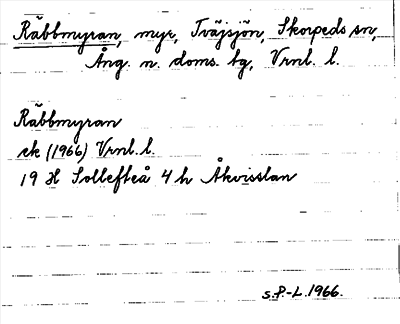 Räbbmyran, myr, Tväjsjön, Skorpeds sn,
Ång. n. doms. tg, Vrnl. l.
Räbbmyran
ek (1966) Vrnl. l.
19 H Sollefteå 4 h Åkvisslan
S.P.-L. 1966.